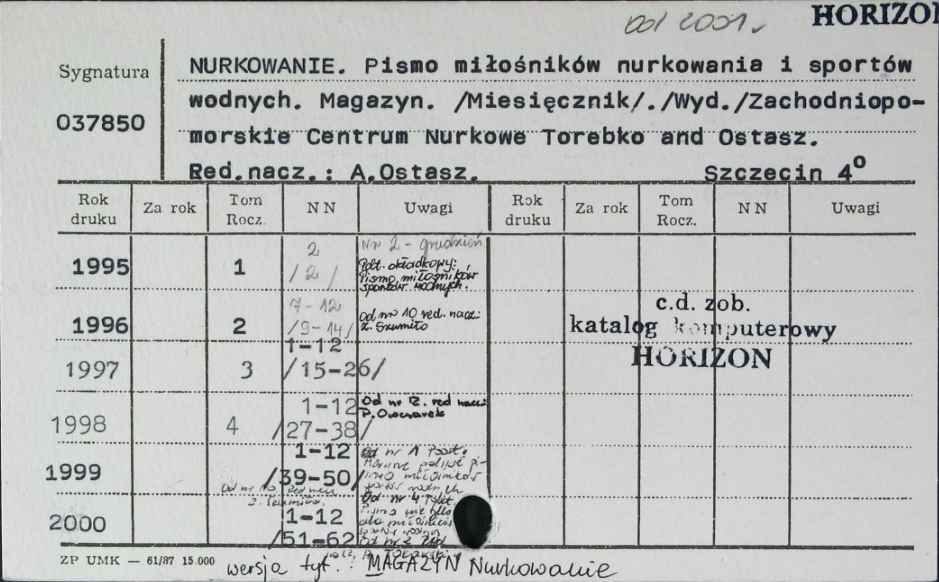 od 2001 HORIZON
Sygnatura
037850
NURKOWANIE. Pismo miłośników nurkowania i sportów
wodnych. Magazyn. /Miesięcznik/./Wyd./Zachodniopo-
morskie Centrum Nurkowe Torebko and Ostasz.
Red.nacz.: A.Ostasz. Szczecin 4°
Rok druku Za rok Tom Rocz. NN Uwagi Rok druku Za rok Tom Rocz. NN Uwagi
1995 1 2 /2/ Nr 2 - grudzień
Podt. okładkowy:
Pismo miłośników
sportów wodnych.
1996 2 7-12 /9-14/ Od nr 10 red. nacz:
Z. Szumiło
c.d. zob.
katalog komputerowy
HORIZON
1997 3 1-12 /15-26/
1998 4 1-12 /27-38/ Od nr 12. red nacz:
P. Owczarek
1999 1-12 /39-50/ Od nr 1 Podt.
2000 1-12 /51-62/ Od nr 4
ZP UMK — 61/87 15.000
wersja tyt.: MAGAZYN Nurkowanie